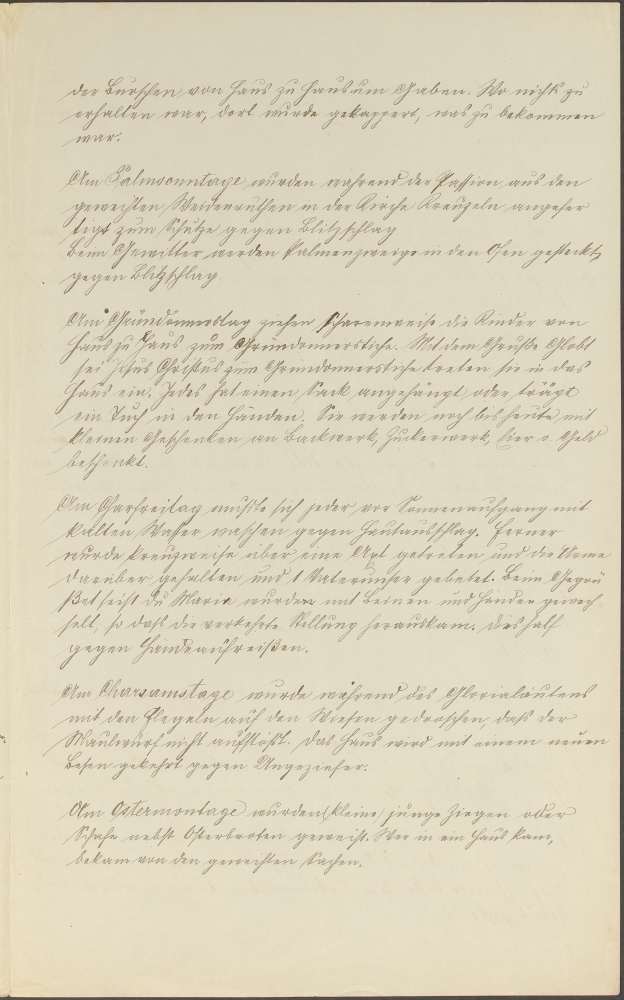 der Burschen von Haus zu Haus um Gaben. Wo nichts zu
erhalten war, dort wurde gekappert, was zu bekommen
war.
Am Palmsonntage wurden während der Passion aus den
geweihten Weidenruthen in der Kirche Kreuzeln angefer
tigt zum Schutze gegen Blitzschlag
Beim Gewitter werden Palmenzweige in den Ofen gesteckt,
gegen Blitzschlag.
Am Gründonnerstag ziehen scharenweise die Kinder von
Haus zu Haus zum Gründonnerstiche. Mit dem Gruße Globt
sei Jesus Christus zum Grundonnerstiche treten sie in das
Haus ein. Jedes hat einen Sack angehängt oder trägt
ein Tuch in den Händen. Sie werden noch bis heute mit
kleinen Geschenken an Backwerk, Zuckerwerk, Eier o. Geld
beschenkt.
Am Charfreitag mußte sich jeder vor Sonnenaufgang mit
kaltem Wasser waschen gegen Hautausschlag. Ferner
wurde kreuzweise über eine Axt getreten und die Arme
darüber gehalten und 1 Vaterunser gebetet. Beim Gegrü
ßet seist du Maria wurden mit Beinen und Händen gewech
selt, so daß die verkehrte Stellung herauskam. Das half
gegen Händeaufreißen.
Am Charsamstage wurde während des Glorialäutens
mit den Flegeln auf den Wiesen gedroschen, daß der
Maulwurf nicht aufstößt. Das Haus wird mit einem neuen
Besen gekehrt gegen Ungeziefer.
Am Ostermontage wurden (kleine) junge Ziegen oder
Schafe nebst Osterbroten geweiht. Wer in ein Haus kam,
bekam von den geweihten Sachen.